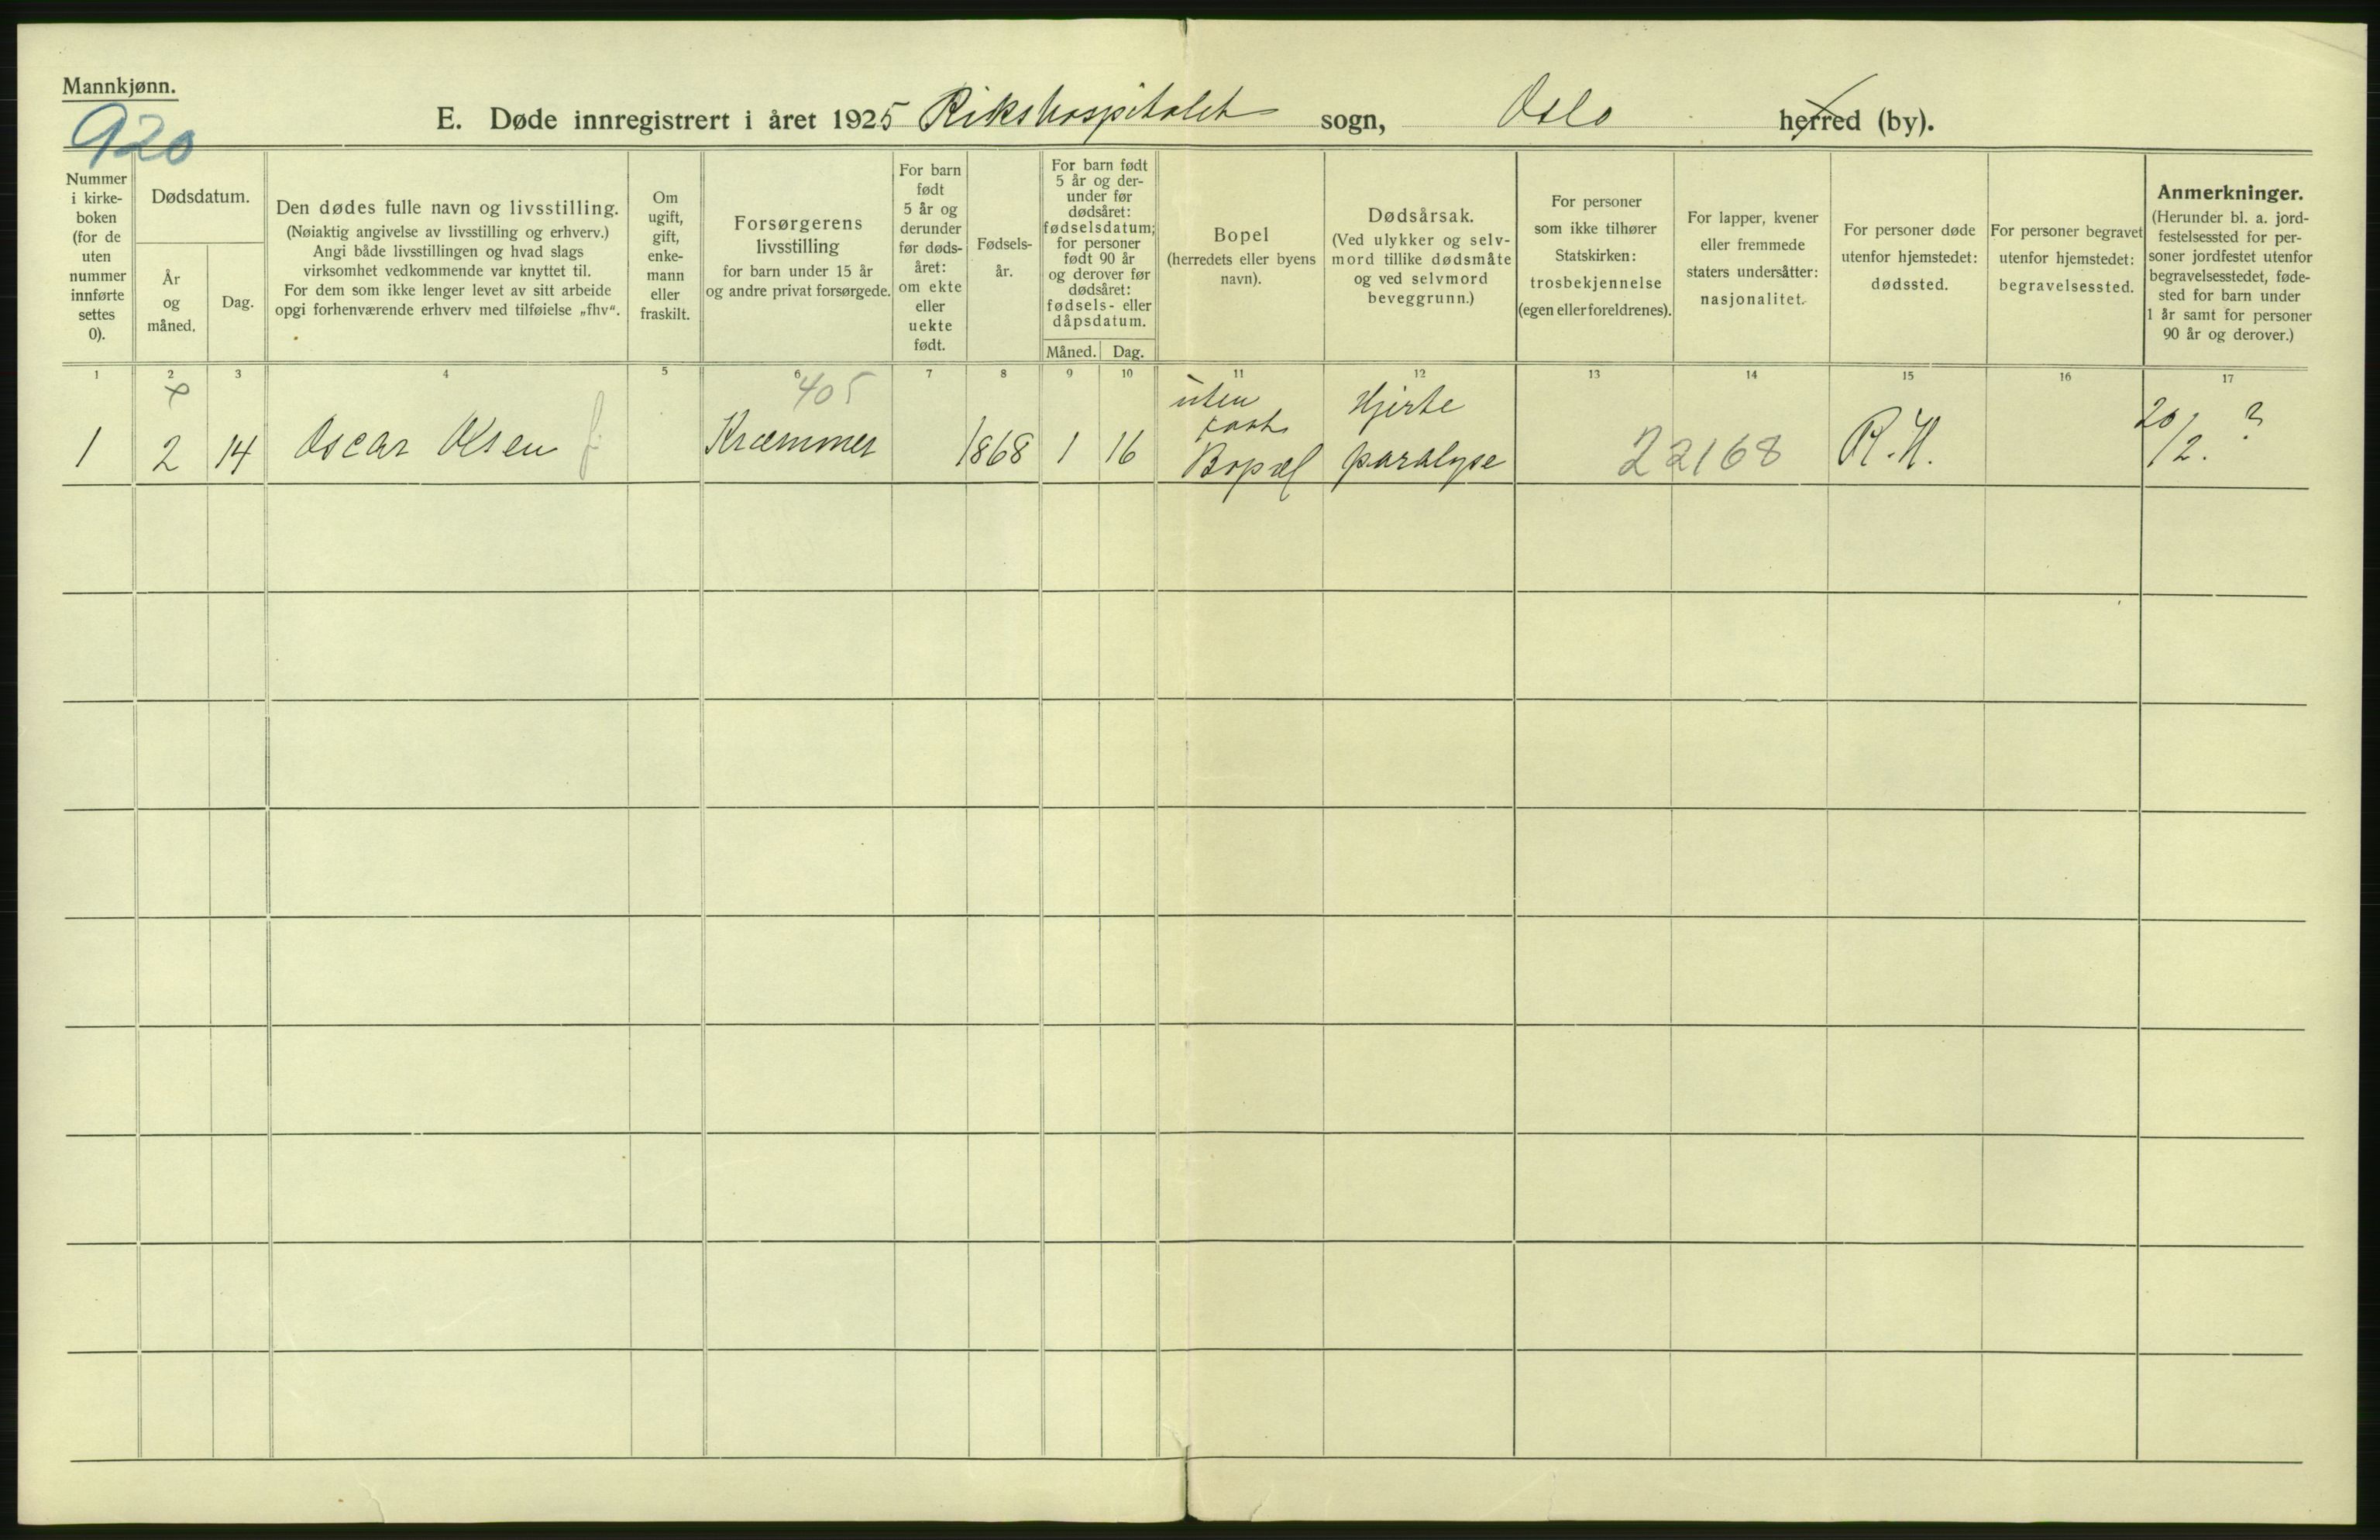 Mannkjønn.
920
E. Døde innregistrert i året 1925 Rikshospitalet sogn, Oslo herred (by).
Nummer
i kirke-
boken
(for de
uten
nummer
innførte
settes
0).
Dødsdatum.
År
og
måned.
Dag.
Den dødes fulle navn og livsstilling.
(Nøiaktig angivelse av livsstilling og erhverv.)
Angi både livsstillingen og hvad slags
virksomhet vedkommende var knyttet til.
For dem som ikke lenger levet av sitt arbeide
opgi forhenværende erhverv med tilføielse „fhv“.
Om
ugift,
gift,
enke-
mann
eller
fraskilt.
Forsørgerens
livsstilling
for barn under 15 år
og andre privat forsørgede.
For barn
født
5 år og
derunder
før døds-
året:
om ekte
eller
uekte
født.
Fødsels-
år.
For barn født
5 år og der-
under før
dødsåret:
fødselsdatum;
for personer
født 90 år
og derover før
dødsåret:
fødsels- eller
dåpsdatum.
Måned.
Dag.
Bopel
(herredets eller byens
navn).
Dødsårsak.
(Ved ulykker og selv-
mord tillike dødsmåte
og ved selvmord
beveggrunn.)
For personer
som ikke tilhører
Statskirken:
trosbekjennelse
(egen eller foreldrenes).
For lapper, kvener
eller fremmede
staters undersåtter:
nasjonalitet.
For personer døde
utenfor hjemstedet:
dødssted.
For personer begravet
utenfor hjemstedet:
begravelsessted.
Anmerkninger.
(Herunder bl. a. jord-
festelsessted for per-
soner jordfestet utenfor
begravelsesstedet, føde-
sted for barn under
1 år samt for personer
90 år og derover.)
1 2 3 4 5 6 7 8 9 10 11 12 13 14 15 16 17
405
uten
fast
Bopæl
Hjerte
paralyse
1 2 14 Oscar Olsen f. Kræmmer 1868 1 16 22168 R.H. 20/2. ?